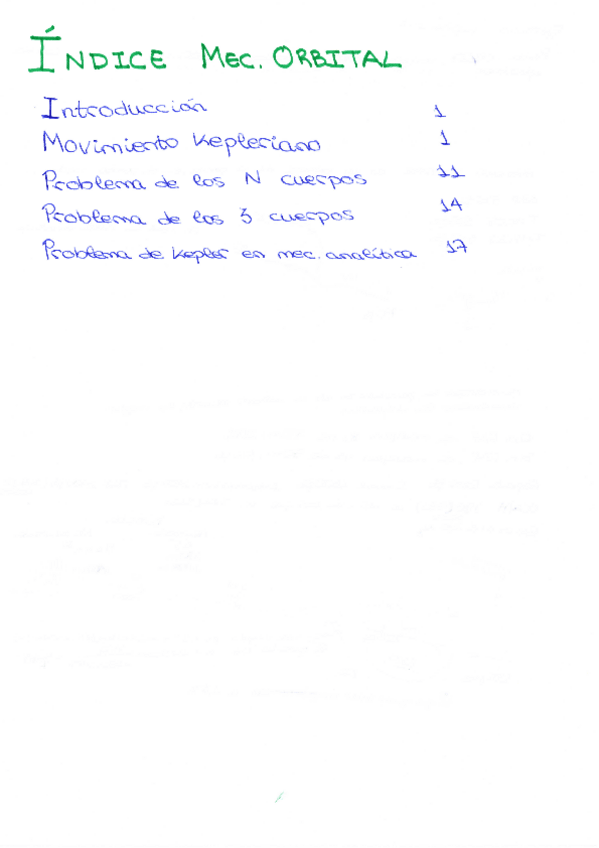 ÍNDICE MEC. ORBITAL
Introducción 1
Movimiento Kepleriano 1
Problema de los N cuerpos 11
Problema de los 3 cuerpos 14
Problema de Kepler en mec. analítica 17